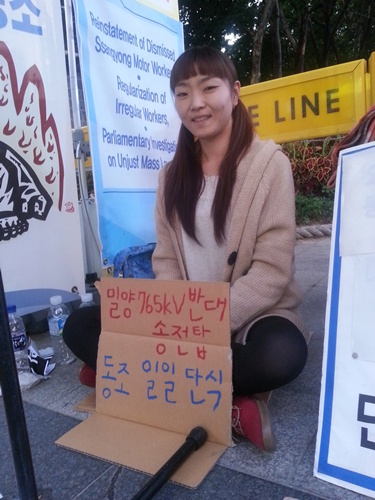 Reinstatement of Dismissed
Ssangyong Motor Worke
Regularization of
Irregular Workers,
Parliamentary Investigati
on Unjust Mass
E LINE
밀양 765kV 반대
송전탑
동조 일일 단식